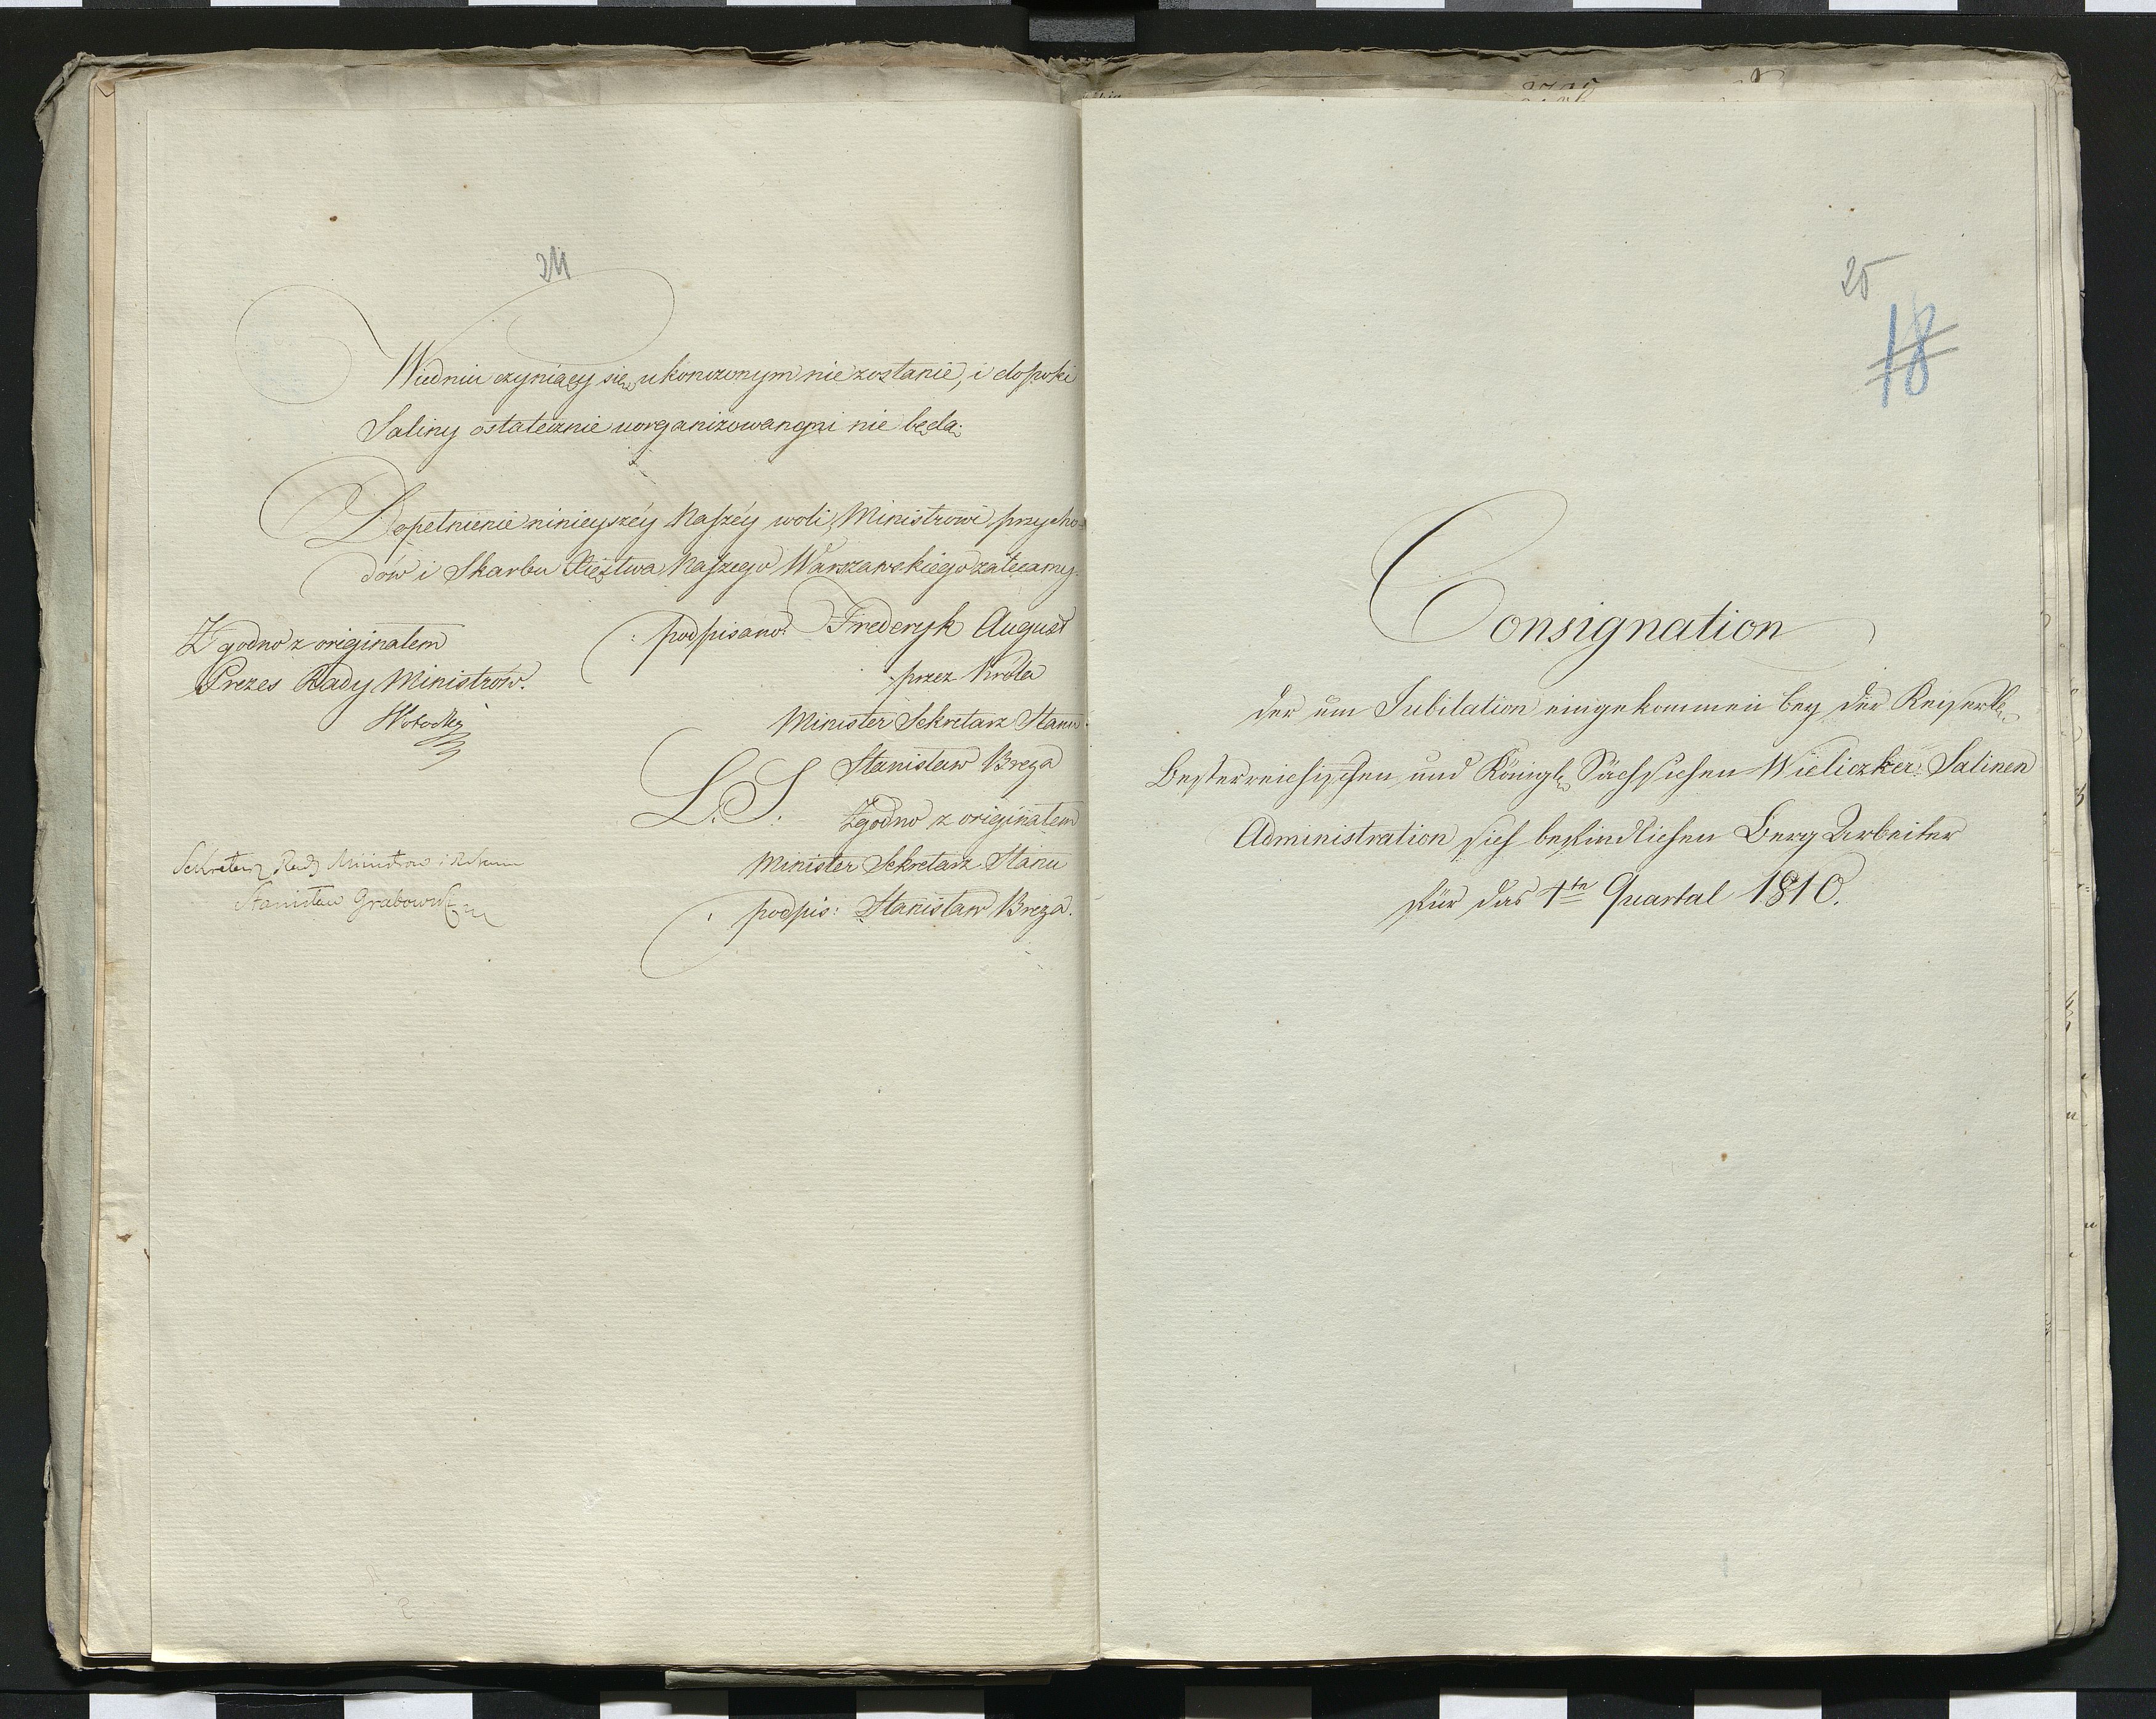 24
Wiedniu czyniący się ukończonym nie zostanie, i dopoki
Saliny ostatecznie uorganizowanymi nie będą.
Dopełnienie ninieyszéy Naszéy woli, Ministrowi przycho-
dów i Skarbu Xięstwa Naszego Warszawskiego zalecamy.
Zgodno z originałem
Prezes Rady Ministrów.
Sekretarz Rady Ministrow i Stanu
Stanisław Grabowski
: podpisano: Frederyk August
przez Króla
Minister Sekretarz Stanu
Stanisław Breza
L. S.
Zgodno z originałem
Minister Sekretarz Stanu
: podpis: Stanisław Breza.
25
18
Consignation
der um Jubilation eingekommen bey der Keiserl.
Oesterreichischen und Königl. Sächsischen Wieliczker Salinen
Administration sich befindlichen Berg Arbeiter
für das 4te Quartal 1810.